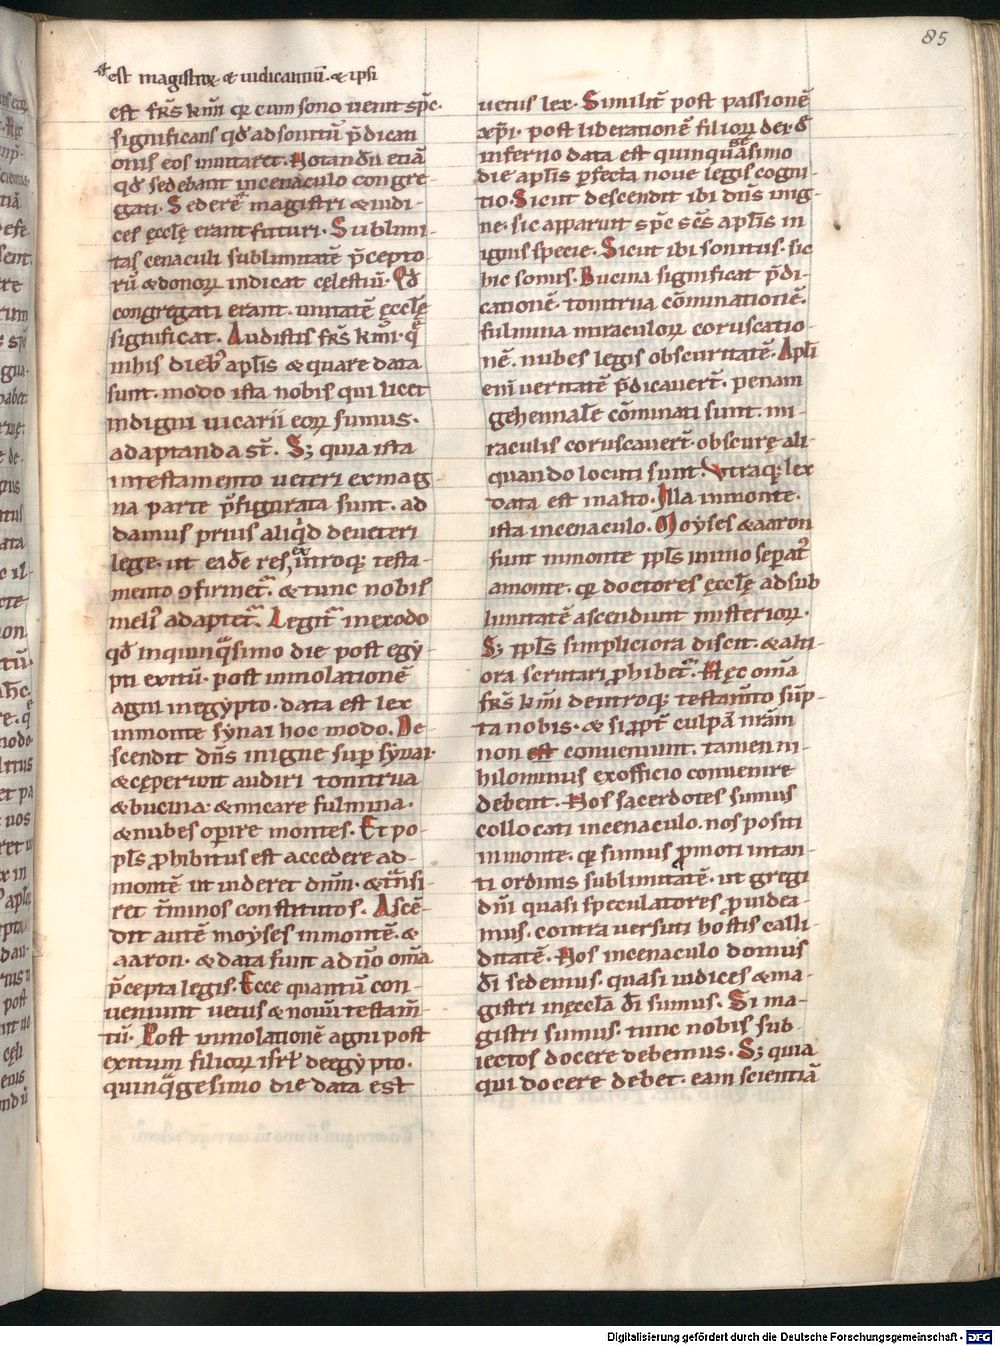 85
est magistroꝝ. & iudicantiū. & ipsi
est frs kmi qr cum sono uenit spc.
significans qd ad sonitū pdicati
onis eos inuitaret. Notandū etiā
qd sedebant incenaculo congre-
gati. Sedere magistri & iudi-
ces ęcclę erant futuri. Sublimi-
tas cenaculi sublimitatē pcepto-
rū & donoꝝ indicat cęlestiū. Qd
congregati erant. unitatē ęcclę
significat. Audistis frs kmi. q
inhis dieb; aplis & quare data
sunt. modo ista nobis qui licet
indigni uicarii eoꝝ sumus.
adaptanda st. S; quia ista
intestamento ueteri exmag
na parte pfigurata sunt. ad
damus prius aliqd deueteri
lege. ut eadē res, ex utroq; testa-
mento ꝯfirmet. & tunc nobis
meli' adaptet. Legit inexodo
qd inquinqsimo die post egy-
pti exitū. post inmolationē
agni inegypto. data est lex
inmonte synai hoc modo. De-
scendit dns inigne sup synai.
& cęperunt audiri tonitrua
& bucina. & micare fulmina.
& nubes opire montes. Et po-
pls phibitus est accedere ad
montē ut uideret dnm. & tnsi-
ret tminos constitutos. Ascē-
dit autē moyses inmontē. &
aaron. & data sunt aduo oma
pcepta legis. Ecce quantū con-
ueniunt uetus & nouū testam-
tū. Post inmolationē agni post
exitum filioꝝ isrl deegypto.
quinqgesimo die data est
uetus lex. Similit post passionē
xpi. post liberationē filioꝝ dei d
inferno data est quinquasimo
die aplis pfecta noue legis cogni-
tio. Sicut descendit ibi dns inig-
ne. sic apparuit spc scs aplis in
ignis specie. Sicut ibi sonitus. sic
hic sonus. Bucina significat pdi-
cationē. tonitrua cōminationē.
fulmina miraculoꝝ coruscatio-
nē. nubes legis obscuritatē. Apli
eni ueritatē pdicauert. penam
gehennalē cōminati sunt. mi-
raculis coruscauert. obscurę ali-
quando locuti sunt. Vtraq; lex
data est inalto. Illa inmonte.
ista incenaculo. Moyses & aaron
sunt inmonte ppls uimo seperat
amonte. qr doctores ęcclę adsub
limitatē ascendunt misterioꝝ.
S; ppls simpliciora discit. & alti-
ora scrutari phibet. Hęc oma
frs kmi deutroq; testamto sup-
ta nobis. & si ppt culpā nram
non est conueniunt. tamen ni-
hilominus exofficio conuenire
debent. Nos sacerdotes sumus
collocati incenaculo. nos positi
inmonte. qr sumus pmoti intan-
ti ordinis sublimitatē. ut gregi
dni quasi speculatores puidea-
mus. contra uersuti hostis calli-
ditatē. Nos incenaculo domus
di sedemus. quasi iudices & ma-
gistri inęccla di sumus. Si ma-
gistri sumus. tunc nobis sub-
iectos docere debemus. S; quia
qui docere debet. eam scientiā
Digitalisierung gefördert durch die Deutsche Forschungsgemeinschaft - DFG